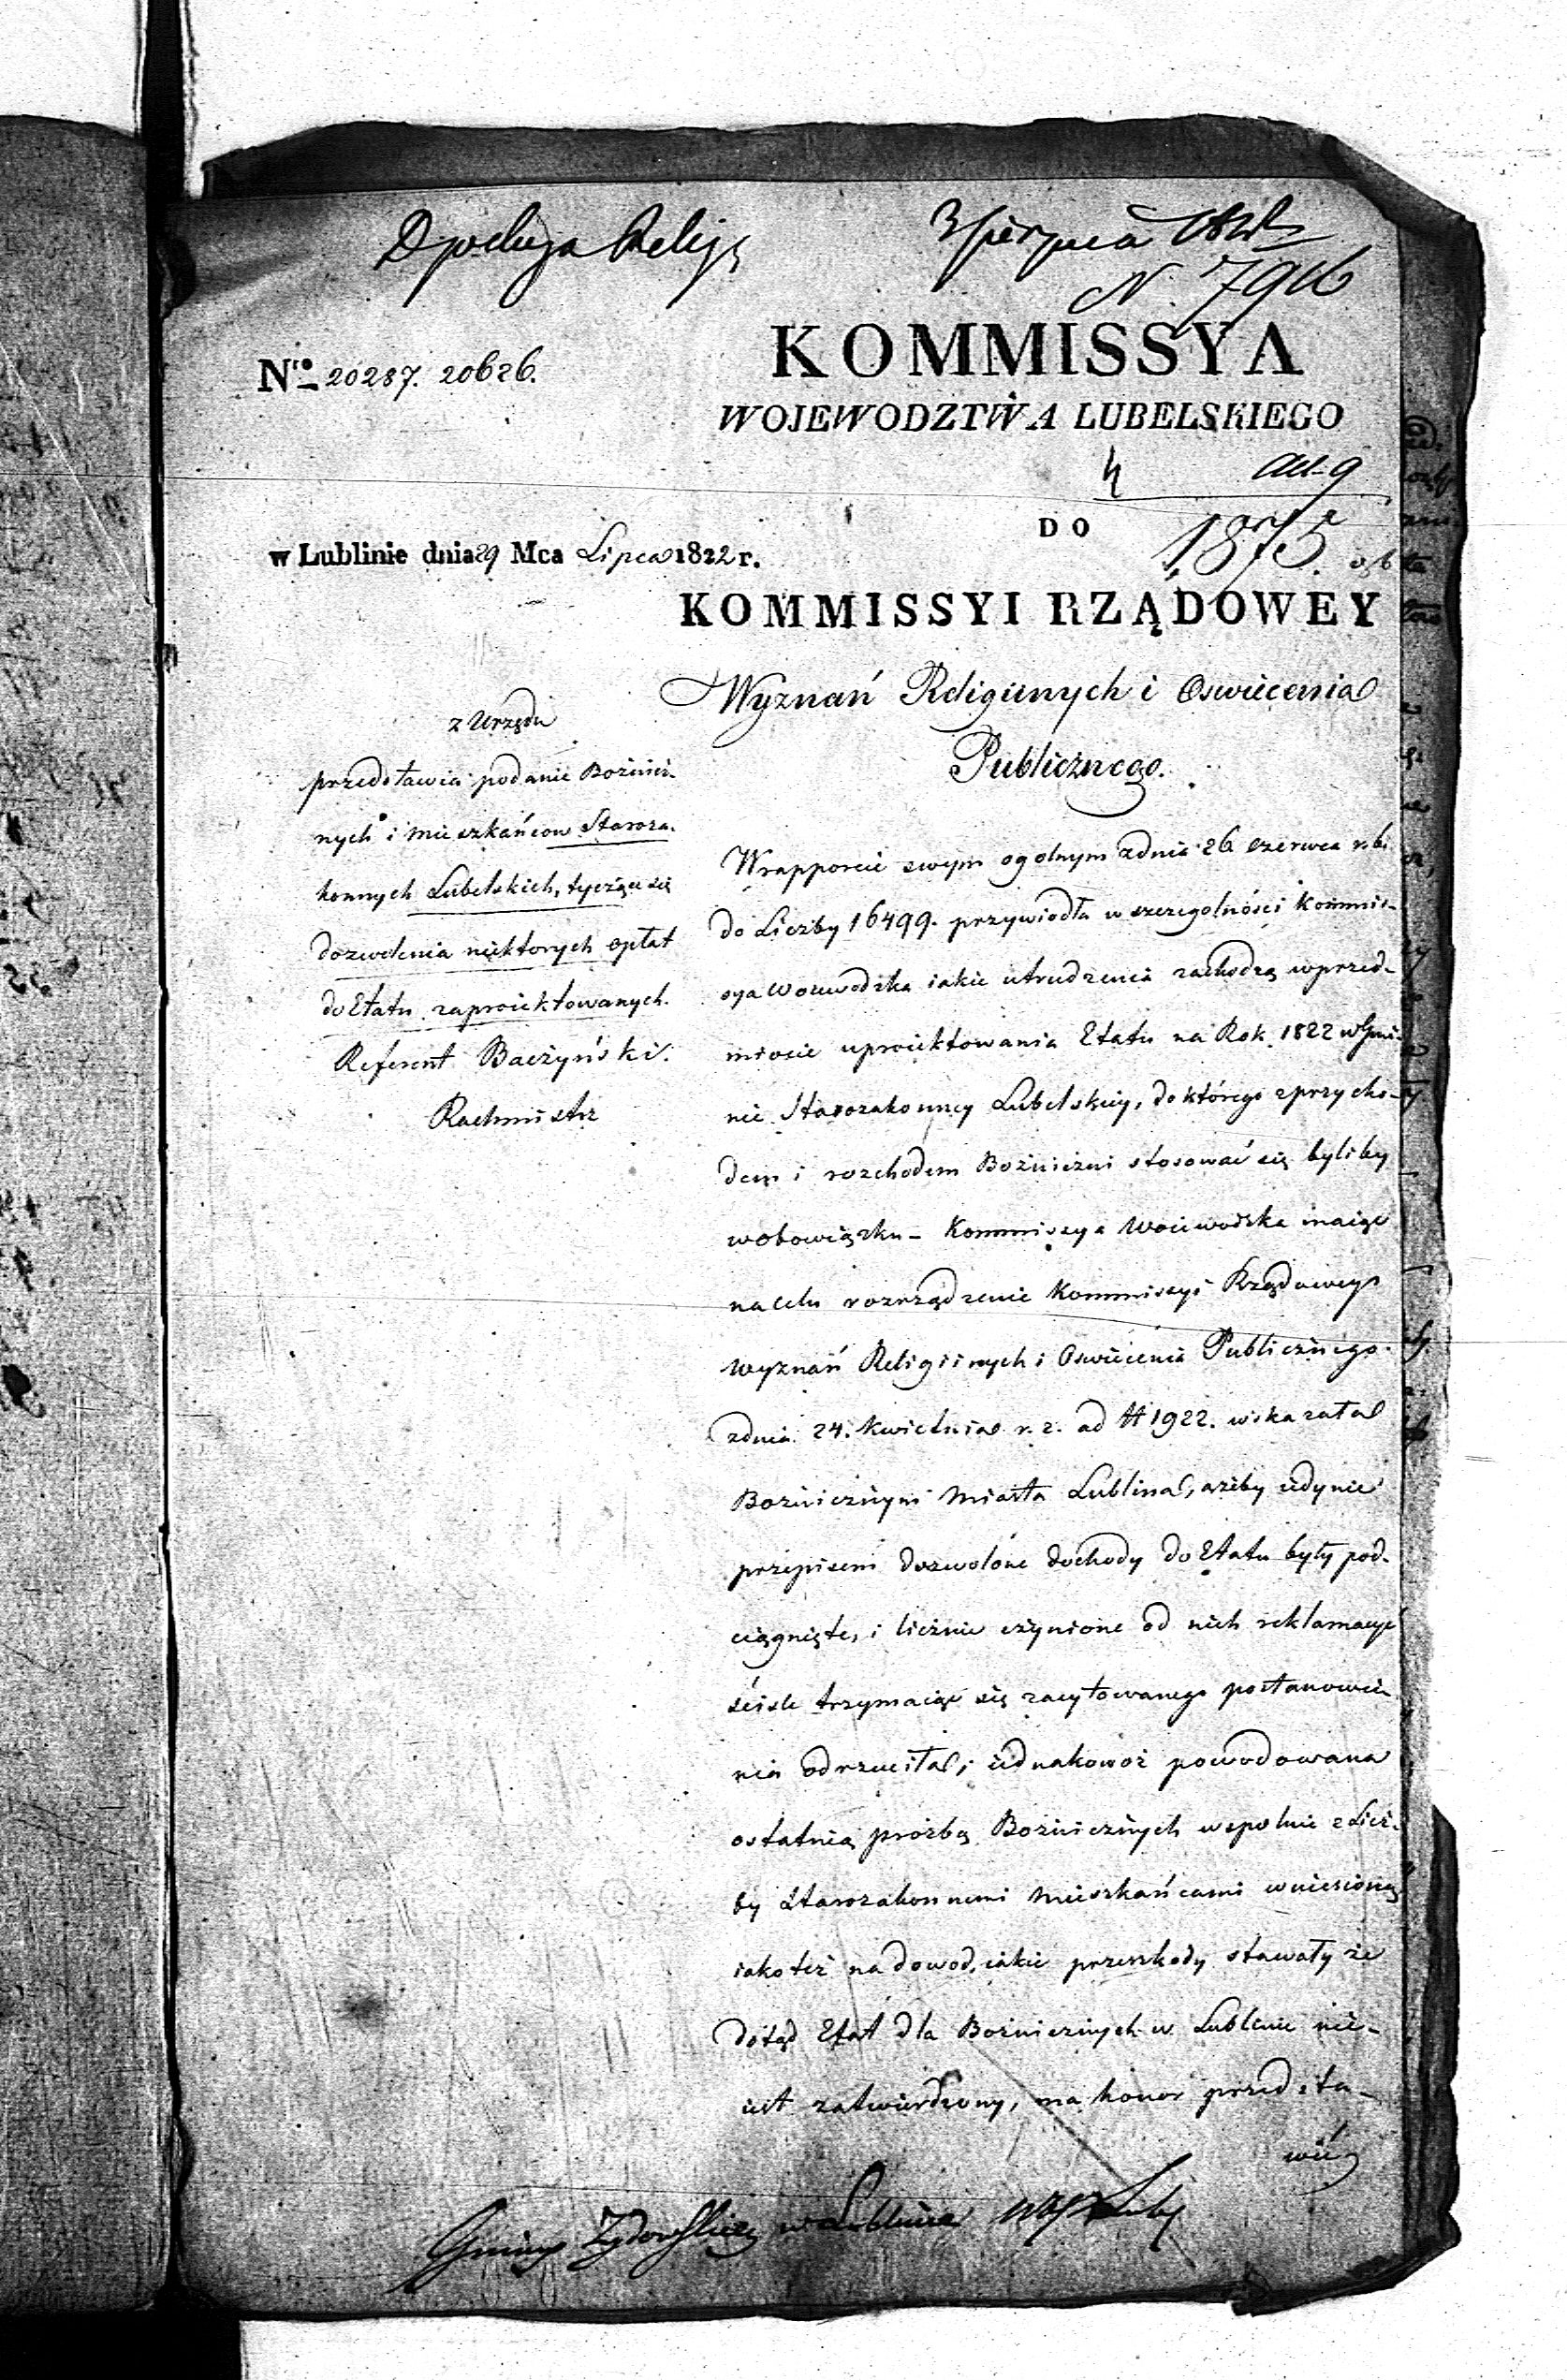 3 Sierpnia
N. 7916
Nro 20287. 20626.
KOMMISSYA
WOJEWODZTWA LUBELSKIEGO
w Lublinie dnia 29 Mca Lipca 1822 r.
DO
1875.
KOMMISSYI RZĄDOWEY
Wyznań Religiinych i Oswiecenia
Publicznego.
z Urzędu
przedstawia podanie Bożnicz-
nych i mieszkańcow Staroza-
konnych Lubelskich, tyczące się
dozwolenia niektorych opłat
do Etatu zaproiektowanych.
Referent Baczyński.
Rachmistrz
W rapporcie swym ogolnym z dnia 26 czerwca r. b.
do Liczby 16499. przywiodła w szczegolności Kommis-
sya Woiewodzka iakie utrudzenia zachodzą w przed-
miocie uproiektowania Etatu na Rok 1822 w Gmi-
nie Starozakonney Lubelskiey, do którego z przycho-
dem i rozchodem Bożniczni stosować się byliby
w obowiązku – Kommissya Woiewodzka maiąc
na celu rozrządzenie Kommissyi Rządowey
Wyznań Religiinych i Oswiecenia Publicznego
z dnia 24. Kwietnia r. z. ad N 1922. wskazała
Bożnicznym Miasta Lublina, ażeby iedynie
przepisem dozwolone dochody do Etatu były pod-
ciągnięte, i licznie czynione od nich reklamacye
ściśle trzymaiąc się zacytowanego postanowie
nia odrzuciła; iednakowoż powodowana
ostatnią proźbą Bożnicznych wspolnie z Licz-
by Starozakonnemi Mieszkańcami wniesioną
iakoteż na dowod, iakie przeszkody stawały że
dotąd Etat dla Bożnicznych w Lublinie nie-
iest zatwierdzony, ma honor przedsta-
wić
Gminy Żydowskiey w Lublinie